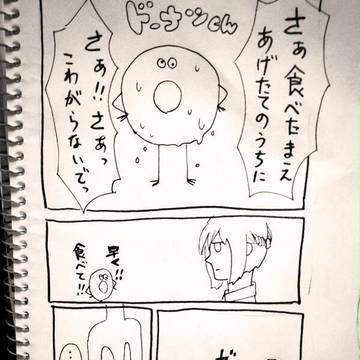 ドーナツくん
さぁ食べたまえ
あげたてのうちに
さぁ!!さぁっ
こわがらないでっ
早く!!
食べて!!
…